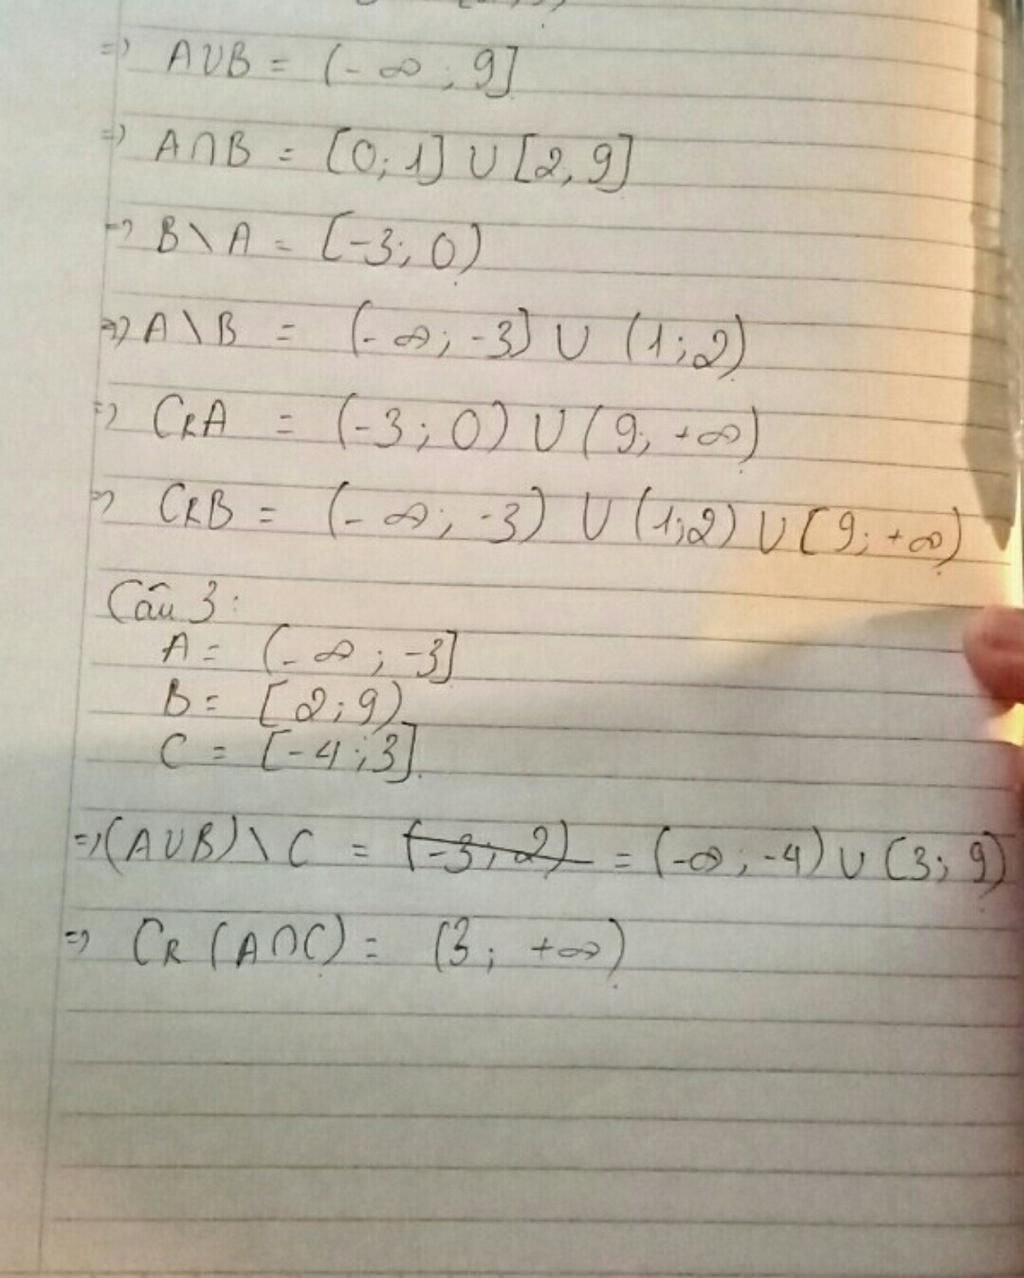 => A∪B = (-∞; 9]
=> A∩B = [0; 1] ∪ [2, 9]
=> B\A = [-3; 0)
=> A\B = (-∞; -3) ∪ (1; 2)
=> CRA = (-3; 0) ∪ (9; +∞)
=> CRB = (-∞; -3) ∪ (1;2) ∪ [9; +∞)
Câu 3:
A = (-∞; -3]
B = [2; 9)
C = [-4; 3].
=> (A∪B)\C = (-3; 2) = (-∞; -4) ∪ (3; 9)
=> CR (A∩C) = (3; +∞)